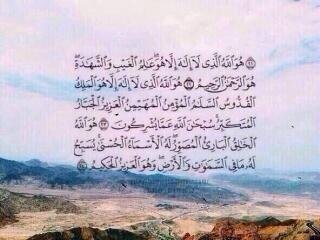 ﴿٢١﴾ هُوَ ٱللَّهُ ٱلَّذِى لَآ إِلَٰهَ إِلَّا هُوَ ۖ عَٰلِمُ ٱلْغَيْبِ وَٱلشَّهَٰدَةِ ۖ
هُوَ ٱلرَّحْمَٰنُ ٱلرَّحِيمُ ﴿٢٢﴾ هُوَ ٱللَّهُ ٱلَّذِى لَآ إِلَٰهَ إِلَّا هُوَ ٱلْمَلِكُ
ٱلْقُدُّوسُ ٱلسَّلَٰمُ ٱلْمُؤْمِنُ ٱلْمُهَيْمِنُ ٱلْعَزِيزُ ٱلْجَبَّارُ
ٱلْمُتَكَبِّرُ ۚ سُبْحَٰنَ ٱللَّهِ عَمَّا يُشْرِكُونَ ﴿٢٣﴾ هُوَ ٱللَّهُ
ٱلْخَٰلِقُ ٱلْبَارِئُ ٱلْمُصَوِّرُ ۖ لَهُ ٱلْأَسْمَآءُ ٱلْحُسْنَىٰ ۚ يُسَبِّحُ
لَهُۥ مَا فِى ٱلسَّمَٰوَٰتِ وَٱلْأَرْضِ ۖ وَهُوَ ٱلْعَزِيزُ ٱلْحَكِيمُ ﴿٢٤﴾